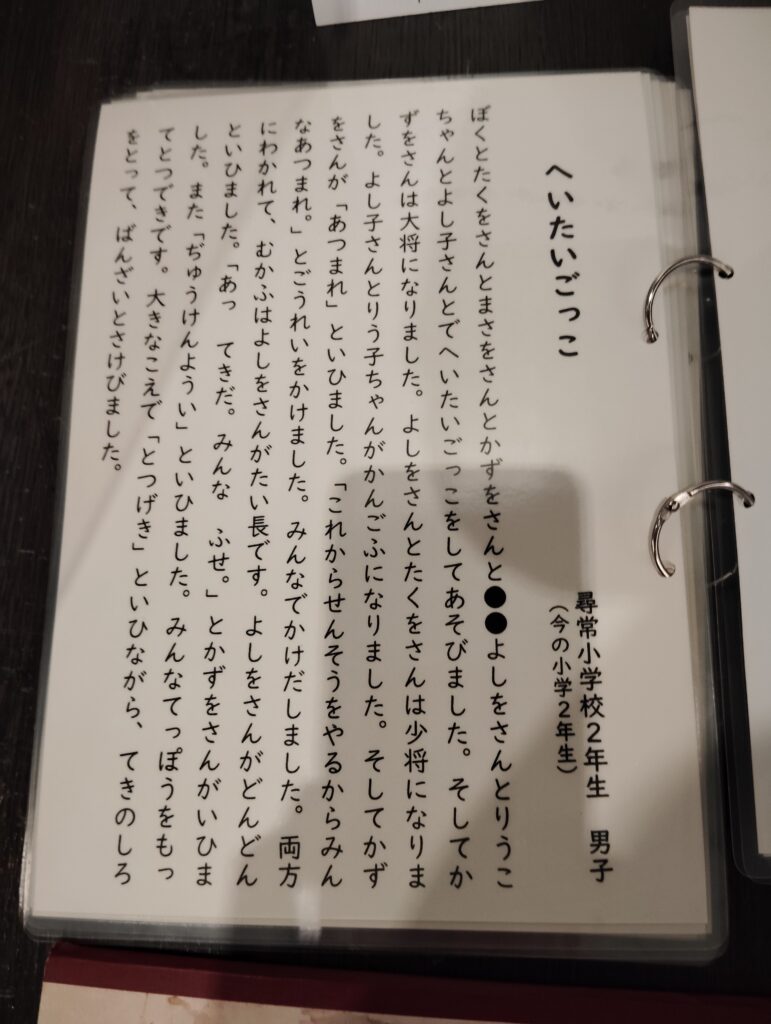 へいたいごっこ
尋常小学校2年生　男子
（今の小学2年生）
ぼくとたくをさんとまさをさんとかずをさんと●●よしをさんとりうこ
ちゃんとよし子さんとでへいたいごっこをしてあそびました。そしてか
ずをさんは大将になりました。よしをさんとたくをさんは少将になりま
した。よし子さんとりう子ちゃんがかんごふになりました。そしてかず
をさんが「あつまれ」といひました。「これからせんそうをやるからみん
なあつまれ。」とごうれいをかけました。みんなでかけだしました。両方
にわかれて、むかふはよしをさんがたい長です。よしをさんがどんどん
といひました。「あっ　てきだ。みんな　ふせ。」とかずをさんがいひま
した。また「ぢゅうけんようい」といひました。みんなてっぽうをもっ
てとつできです。大きなこえで「とつげき」といひながら、てきのしろ
をとって、ばんざいとさけびました。